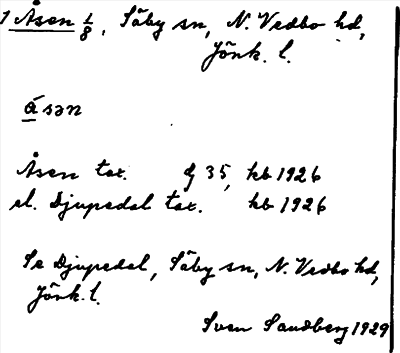 1 Åsen 1/8, Säby sn, N. Vedbo hd,
Jönk. l.
åsən
Åsen tax. dj 35, kb 1926
el. Djupedal tax. kb 1926
Se Djupedal, Säby sn, N. Vedbo hd,
Jönk. l.
Sven Sandberg 1929